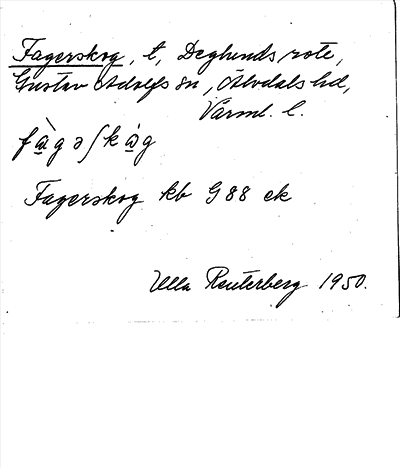 Fagerskog, t, Deglunds rote,
Gustav Adolfs sn, Älvdals hd,
Värml. l.
fàgəʃkȧg
Fagerskog kb G88 ek
Ulla Reuterberg 1950.